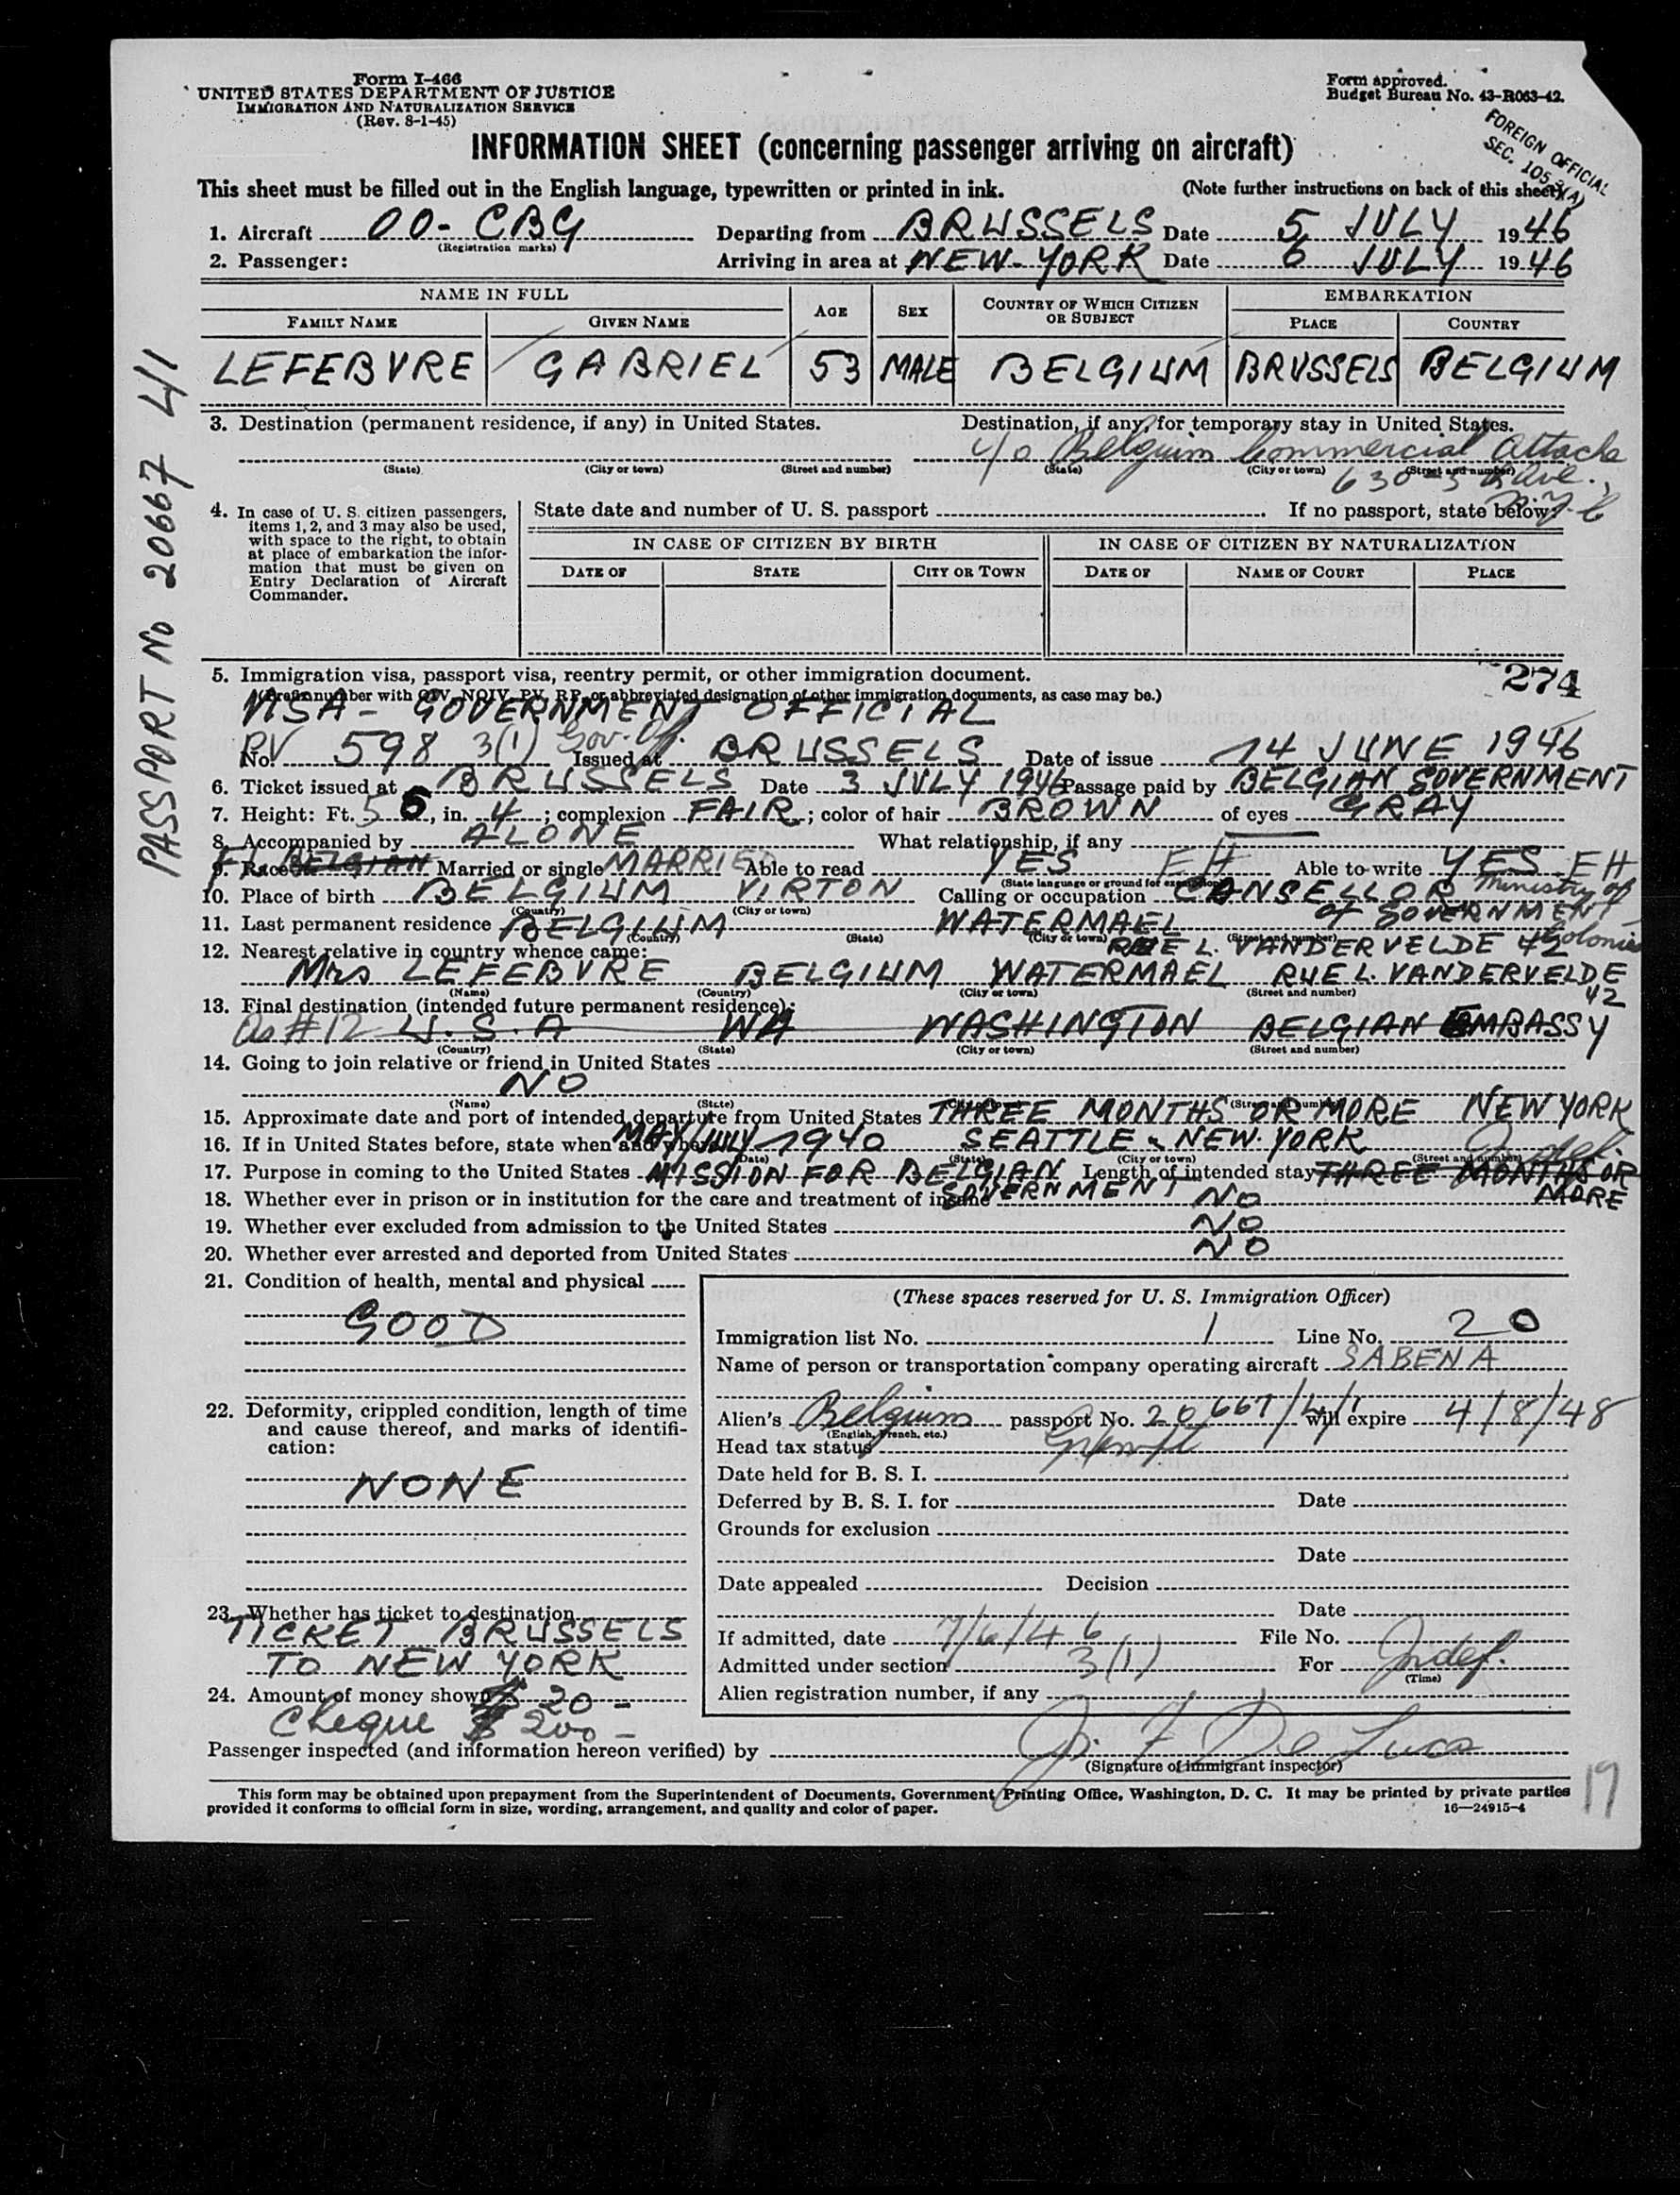 Form I-466
UNITED STATES DEPARTMENT OF JUSTICE
IMMIGRATION AND NATURALIZATION SERVICE
(Rev. 8-1-45)
Form approved.
Budget Bureau No. 43-R063-42.
FOREIGN OFFICIAL
SEC. 105.3(A)
INFORMATION SHEET (concerning passenger arriving on aircraft)
This sheet must be filled out in the English language, typewritten or printed in ink. (Note further instructions on back of this sheet)
1. Aircraft OO-CBG Departing from BRUSSELS Date 5 JULY 1946
(Registration marks)
2. Passenger: Arriving in area at NEW-YORK Date 6 JULY 1946
NAME IN FULL AGE SEX COUNTRY OF WHICH CITIZEN OR SUBJECT EMBARKATION
FAMILY NAME GIVEN NAME PLACE COUNTRY
LEFEBVRE GABRIEL 53 MALE BELGIUM BRUSSELS BELGIUM
PASSPORT No 20667 41
3. Destination (permanent residence, if any) in United States. Destination, if any, for temporary stay in United States.
c/o Belgium Commercial Attache
(State) (City or town) (Street and number) (State) (City or town) (Street and number)
630-5 Ave.,
N.Y.C
4. In case of U. S. citizen passengers, items 1, 2, and 3 may also be used, with space to the right, to obtain at place of embarkation the information that must be given on Entry Declaration of Aircraft Commander.
State date and number of U. S. passport If no passport, state below:
IN CASE OF CITIZEN BY BIRTH IN CASE OF CITIZEN BY NATURALIZATION
DATE OF STATE CITY OR TOWN DATE OF NAME OF COURT PLACE
5. Immigration visa, passport visa, reentry permit, or other immigration document. 274
(Prefix number with QIV, NQIV, PV, RP, or abbreviated designation of other immigration documents, as case may be.)
VISA - GOVERNMENT OFFICIAL
PV No. 598 3(1) Gov. Of. Issued at BRUSSELS Date of issue 14 JUNE 1946
6. Ticket issued at BRUSSELS Date 3 JULY 1946 Passage paid by BELGIAN GOVERNMENT
7. Height: Ft. 5 6, in. 4; complexion FAIR; color of hair BROWN of eyes GRAY
8. Accompanied by ALONE What relationship, if any
9. Race BELGIAN Married or single MARRIED Able to read YES FH Able to write YES FH
(State language or ground for exemption)
10. Place of birth BELGIUM VIRTON Calling or occupation CANSELLOR Ministry of
(Country) (City or town) OF GOVERNMENT
11. Last permanent residence BELGIUM WATERMAEL Colonies
(Country) (State) (City or town) (Street and number) RUE L. VANDERVELDE 42
12. Nearest relative in country whence came:
Mrs LEFEBVRE BELGIUM WATERMAEL RUE L. VANDERVELDE
(Name) (Country) (City or town) (Street and number) 42
13. Final destination (intended future permanent residence):
As #12 U.S.A WA WASHINGTON BELGIAN EMBASSY
(Country) (State) (City or town) (Street and number)
14. Going to join relative or friend in United States
NO
(Name) (State) (City or town) (Street and number)
15. Approximate date and port of intended departure from United States THREE MONTHS OR MORE NEW YORK
16. If in United States before, state when and where MAY/JULY 1940 SEATTLE & NEW-YORK
(Date) (State) (City or town) (Street and number) Indef.
17. Purpose in coming to the United States MISSION FOR BELGIAN Length of intended stay THREE MONTHS OR
GOVERNMENT MORE
18. Whether ever in prison or in institution for the care and treatment of insane NO
19. Whether ever excluded from admission to the United States NO
20. Whether ever arrested and deported from United States NO
21. Condition of health, mental and physical
GOOD
22. Deformity, crippled condition, length of time and cause thereof, and marks of identification:
NONE
23. Whether has ticket to destination
TICKET BRUSSELS
TO NEW YORK
24. Amount of money shown $ 20 -
Cheque $ 200 -
(These spaces reserved for U. S. Immigration Officer)
Immigration list No. 1 Line No. 20
Name of person or transportation company operating aircraft SABENA
Alien's Belgium passport No. 20667/41 will expire 4/8/48
(English, French, etc.)
Head tax status Exempt
Date held for B. S. I.
Deferred by B. S. I. for Date
Grounds for exclusion
Date
Date appealed Decision
Date
If admitted, date 7/6/46 File No.
Admitted under section 3(1) For Indef.
(Time)
Alien registration number, if any
Passenger inspected (and information hereon verified) by J. F De Luca
(Signature of immigrant inspector)
This form may be obtained upon prepayment from the Superintendent of Documents, Government Printing Office, Washington, D. C. It may be printed by private parties
provided it conforms to official form in size, wording, arrangement, and quality and color of paper. 16—24915-4
19